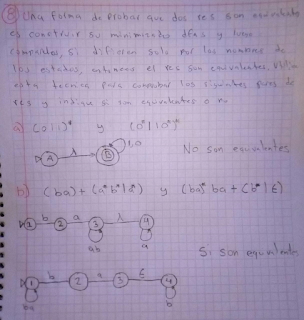 ⑧ Una forma de probar que dos res son equivalentes
es construir su minimizado dfas y luego
compararlos, si difieren solo por los nombres de
los estados, entonces el res son equivalentes. Utilice
esta tecnica para comprobar los siguientes pares de
res y indique si son equivalentes o no
a) (0|1)* y (0*|1*)*
A λ B 1,0
No son equivalentes
b) (ba)+ (a*b*|a*) y (ba)* ba + (b*|ε)
1 b 2 a 3 λ 4
ab a
Si son equivalentes
1 b 2 a 3 ε 4
ba b